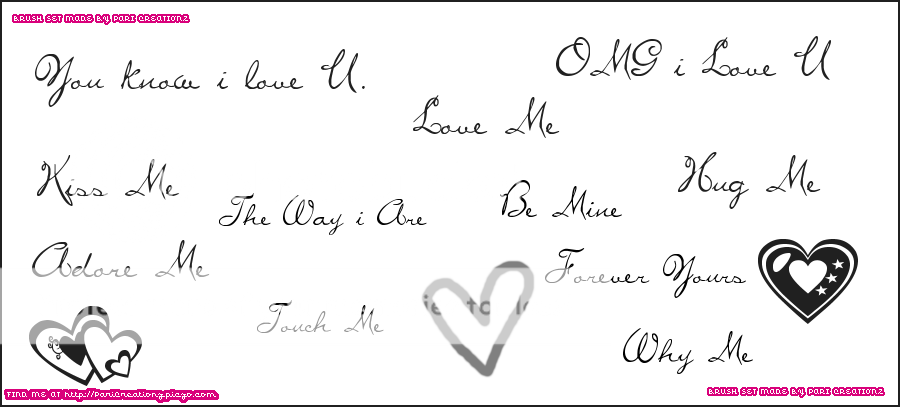 BRUSH SET MADE BY PARI CREATIONZ
You know i love U.
OMG i Love U
Love Me
Kiss Me
Hug Me
The Way i Are
Be Mine
Adore Me
Forever Yours
Touch Me
Why Me
FIND ME AT http://PariCreationz.piczo.com
BRUSH SET MADE BY PARI CREATIONZ